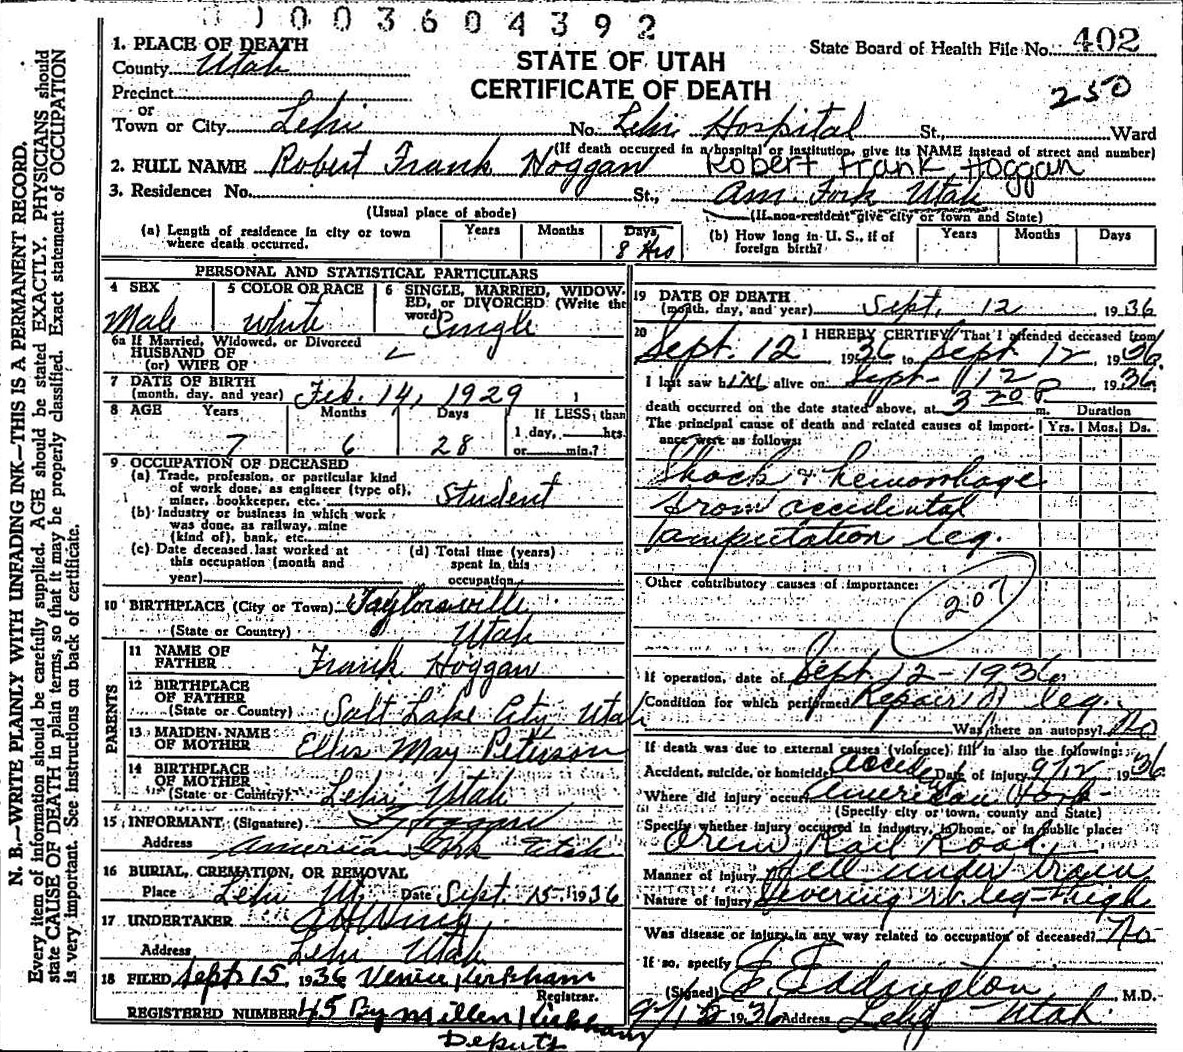 0 1 0 0 3 6 0 4 3 9 2
State Board of Health File No. 402
STATE OF UTAH
CERTIFICATE OF DEATH
250
1. PLACE OF DEATH
County Utah
Precinct
or
Town or City Lehi No. Lehi Hospital St., Ward
(If death occurred in a hospital or institution, give its NAME instead of street and number)
2. FULL NAME Robert Frank Hoggan Robert Frank Hoggan
3. Residence: No. St., Am. Fork Utah
(Usual place of abode) (If non-resident give city or town and State)
(a) Length of residence in city or town where death occurred. Years Months Days 8 Hrs
(b) How long in U. S., if of foreign birth? Years Months Days
PERSONAL AND STATISTICAL PARTICULARS
4 SEX Male
5 COLOR OR RACE White
6 SINGLE, MARRIED, WIDOWED, or DIVORCED (Write the word) Single
6a If Married, Widowed, or Divorced
HUSBAND OF
(or) WIFE OF
7 DATE OF BIRTH
(month, day, and year) Feb. 14, 1929
8 AGE Years 7 Months 6 Days 28 If LESS than 1 day, hrs. or min.?
9 OCCUPATION OF DECEASED
(a) Trade, profession, or particular kind
of work done, as engineer (type of),
miner, bookkeeper, etc. Student
(b) Industry or business in which work
was done, as railway, mine
(kind of), bank, etc.
(c) Date deceased last worked at
this occupation (month and
year)
(d) Total time (years)
spent in this
occupation
10 BIRTHPLACE (City or Town) Taylorsville
(State or Country) Utah
PARENTS
11 NAME OF
FATHER Frank Hoggan
12 BIRTHPLACE
OF FATHER
(State or Country) Salt Lake City Utah
13 MAIDEN NAME
OF MOTHER Ellis May Peterson
14 BIRTHPLACE
OF MOTHER
(State or Country) Lehi Utah
15 INFORMANT (Signature) F Hoggan
Address American Fork Utah
16 BURIAL, CREMATION, OR REMOVAL
Place Lehi Ut. Date Sept. 15 1936
17 UNDERTAKER A H Wing
Address Lehi Utah
18 FILED Sept. 15, 1936 Venice Kirkham
Registrar.
REGISTERED NUMBER 45 By Millen Kirkham
Deputy
19 DATE OF DEATH
(month, day, and year) Sept. 12 1936
20 I HEREBY CERTIFY, That I attended deceased from
Sept. 12, 1936 to Sept 12, 1936.
I last saw him alive on Sept- 12 1936.
death occurred on the date stated above, at 3 20 P m. Duration
The principal cause of death and related causes of importance were as follows: Yrs. Mos. Ds.
Shock & hemorrhage
from accidental
amputation leg.
Other contributory causes of importance:
207
If operation, date of Sept 12-1936
Condition for which performed Repair R leg.
Was there an autopsy? No
If death was due to external causes (violence) fill in also the following:
Accident, suicide, or homicide Accident Date of injury 9/12 1936
Where did injury occur American Fork
(Specify city or town, county and State)
Specify whether injury occurred in industry, in home, or in public place:
Orem Rail Road
Manner of injury fell under train
Nature of injury Severing rt. leg-thigh
Was disease or injury in any way related to occupation of deceased? No
If so, specify
(Signed) E Eddington M.D.
9/12 1936 Address Lehi Utah.
N. B.—WRITE PLAINLY WITH UNFADING INK—THIS IS A PERMANENT RECORD.
Every item of information should be carefully supplied. AGE should be stated EXACTLY. PHYSICIANS should
state CAUSE OF DEATH in plain terms, so that it may be properly classified. Exact statement of OCCUPATION
is very important. See instructions on back of certificate.